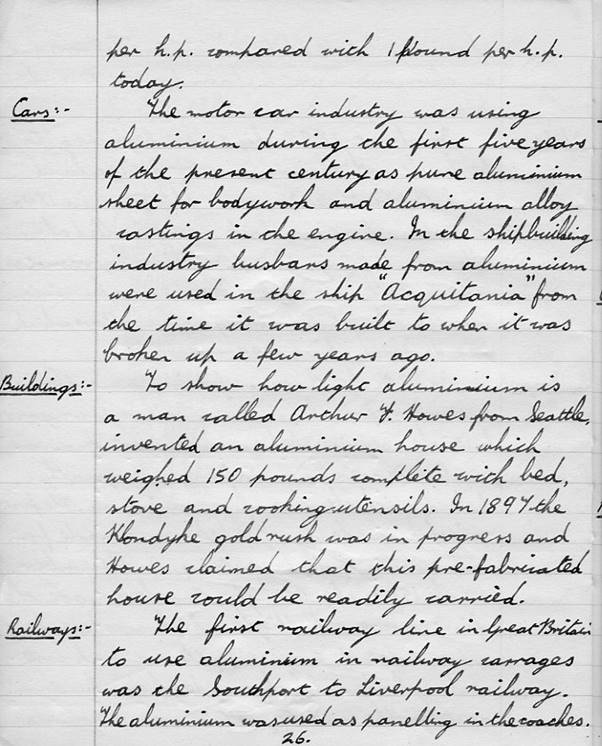 per h.p. compared with 1 pound per h.p.
today.
Cars:- The motor car industry was using
aluminium during the first five years
of the present century as pure aluminium
sheet for bodywork and aluminium alloy
castings in the engine. In the shipbuilding
industry busbars made from aluminium
were used in the ship "Acquitania" from
the time it was built to when it was
broken up a few years ago.
Buildings:- To show how light aluminium is
a man called Arthur F. Howes from Seattle,
invented an aluminium house which
weighed 150 pounds complete with bed,
stove and cooking utensils. In 1897 the
Klondyke gold rush was in progress and
Howes claimed that this pre-fabricated
house could be readily carried.
Railways:- The first railway line in Great Britain
to use aluminium in railway carrages
was the Southport to Liverpool railway.
The aluminium was used as panelling in the coaches.
26.